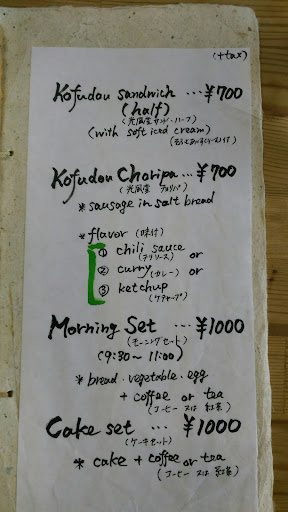 (+tax)
Kofudou sandwich ... ¥700
(half)
(光風堂 サンド・ハーフ)
(with soft iced cream)
Kofudou Choripa ... ¥700
(光風堂 チョリパ)
* sausage in salt bread
* flavor (味付)
① chili sauce or
(チリソース)
② curry (カレー) or
③ ketchup
(ケチャップ)
Morning Set ... ¥1000
(モーニングセット)
(9:30~11:00)
* bread・vegetable・egg
+ coffee or tea
(コーヒー 又は 紅茶)
Cake set ... ¥1000
(ケーキセット)
* cake + coffee or tea
(コーヒー 又は 紅茶)